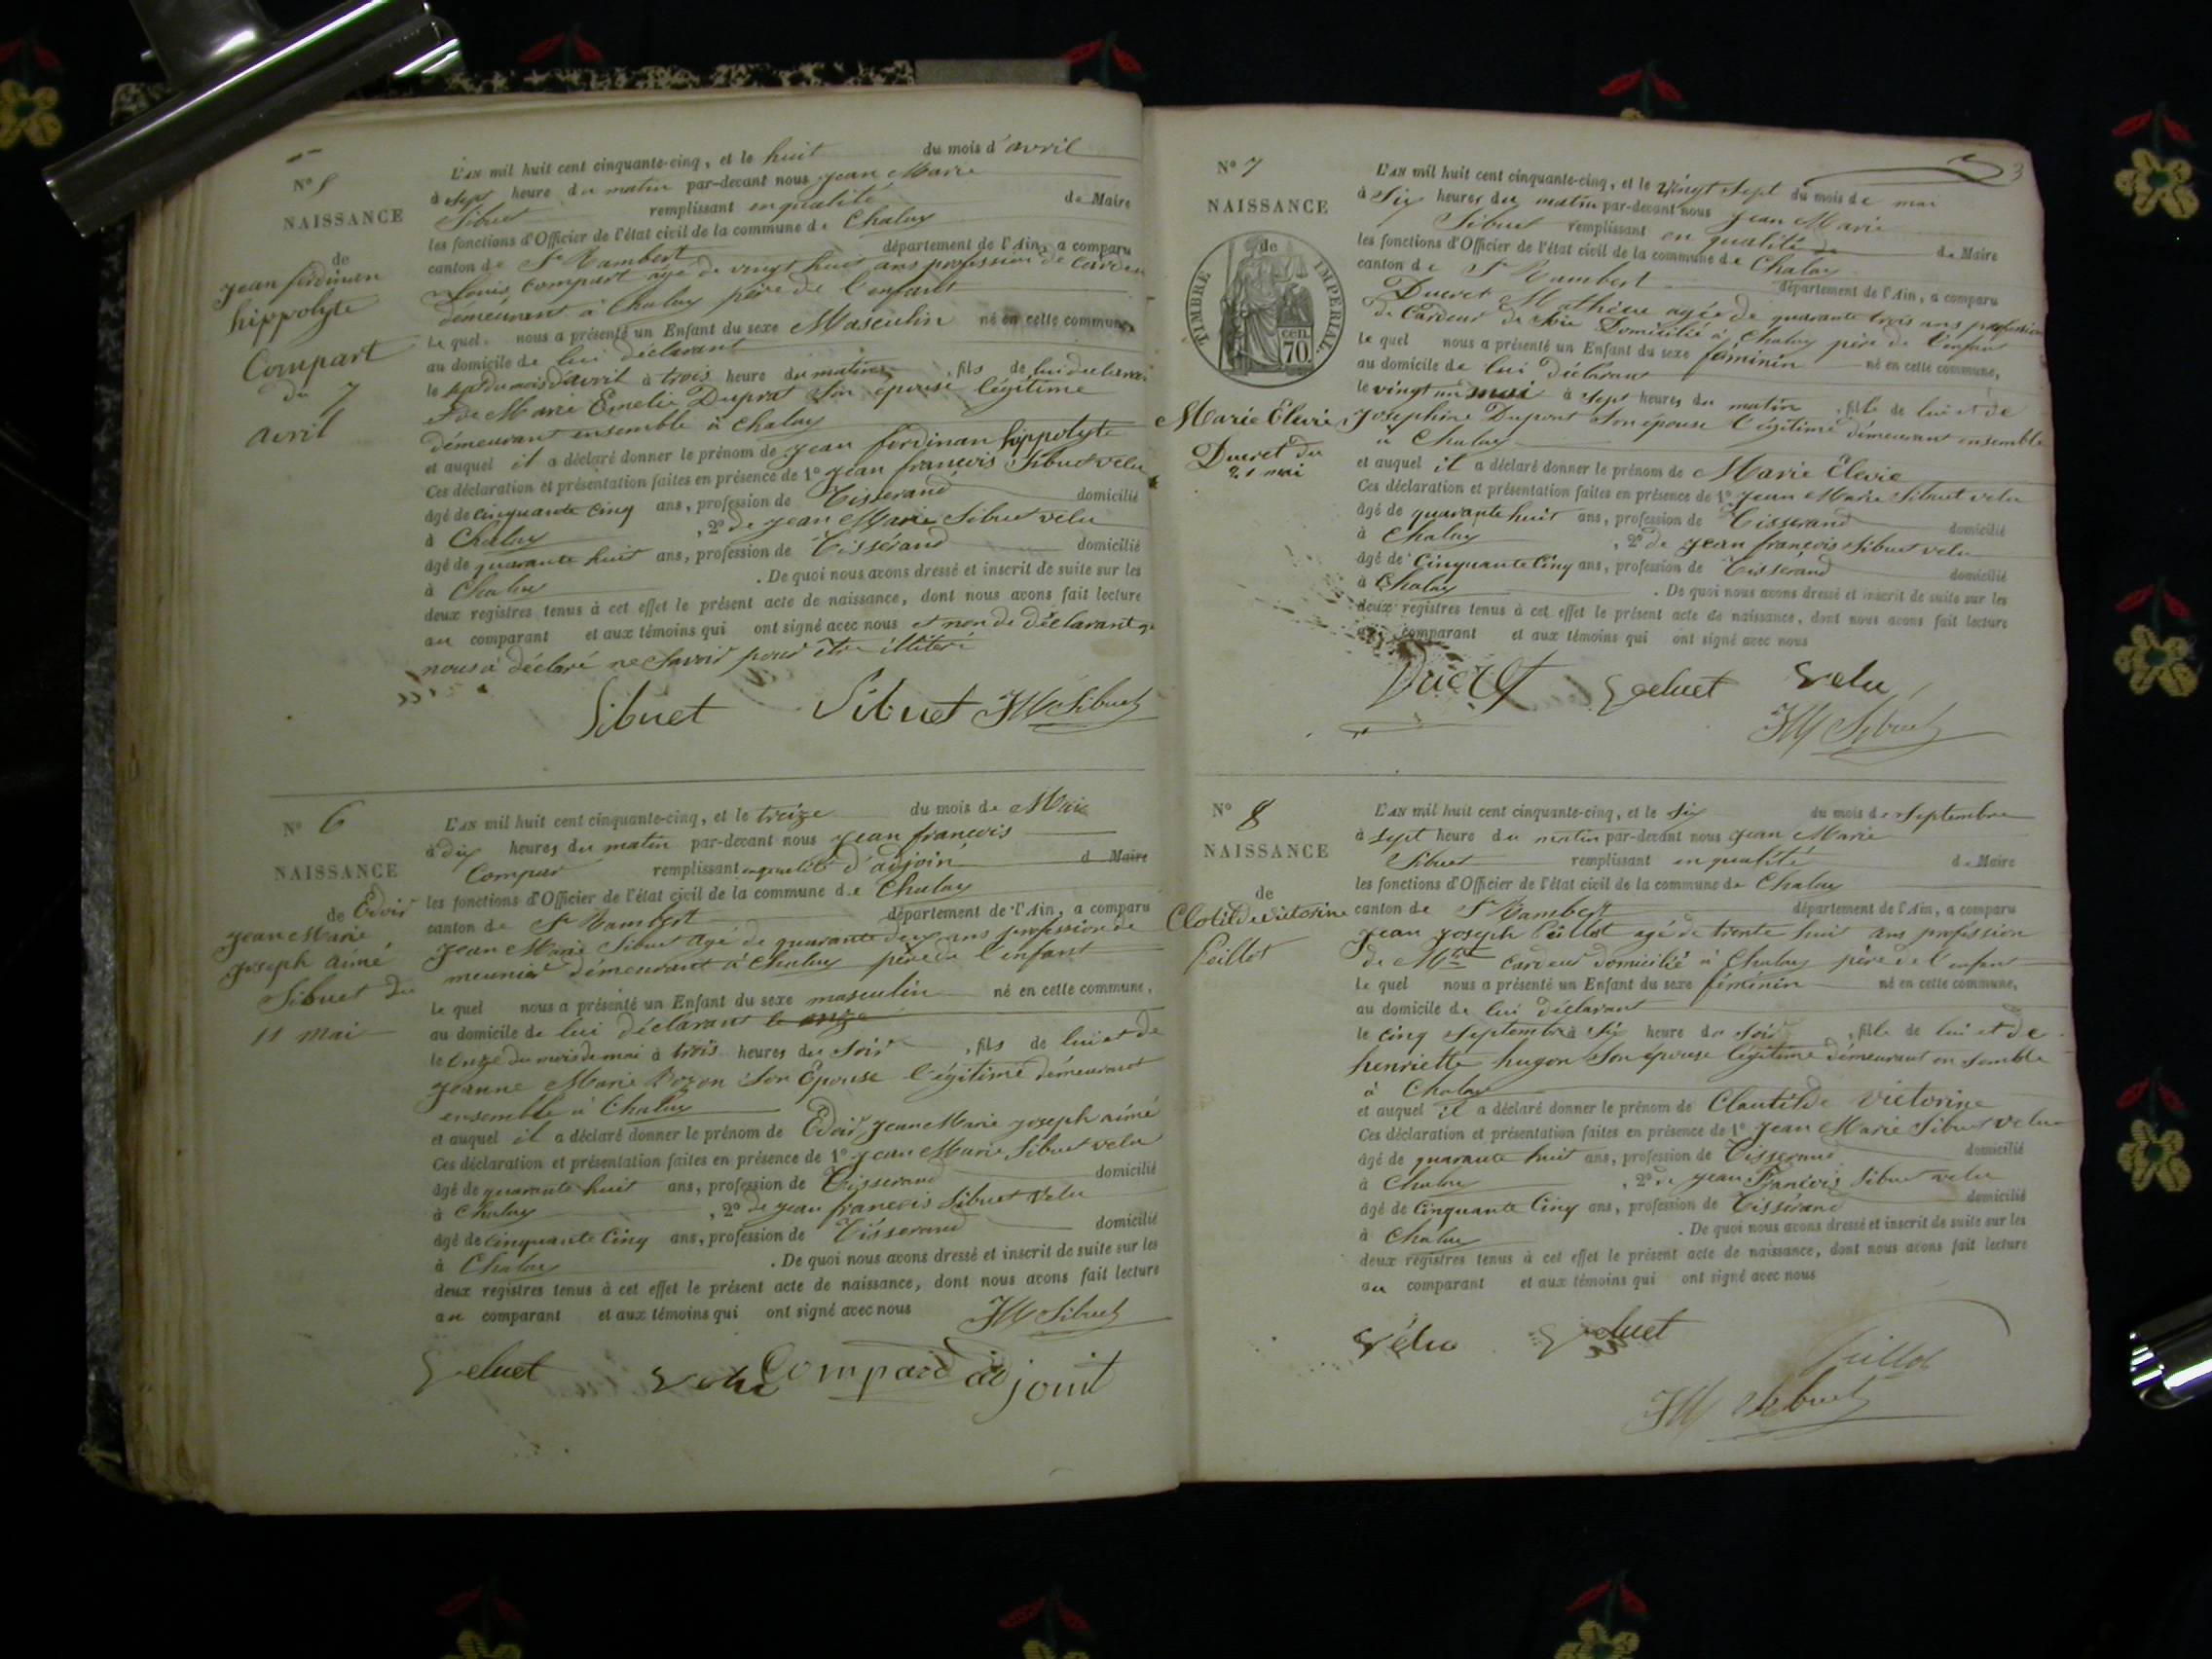 N° 5
NAISSANCE
de
jean ferdinan
hippolyte
Compart
du 7
avril
L'AN mil huit cent cinquante-cinq, et le huit du mois d'avril
à sept heure du matin par-devant nous jean Marie
Sibuet remplissant en qualité de Maire
les fonctions d'Officier de l'état civil de la commune de Chaley
canton de St Rambert département de l'Ain, a comparu
Louis Compart agé de vingt huit ans profession de Cardeu
démeurant à Chaley père de l'enfant
Le quel nous a présenté un Enfant du sexe Masculin né en cette commune,
au domicile de lui déclarant
le sept du mois d'avril à trois heure du matin, fils de lui déclarant
et de Marie Emelie Duprat Son épouse légitime
démeurant ensemble à Chaley
et auquel il a déclaré donner le prénom de jean ferdinan hippolyte
Ces déclaration et présentation faites en présence de 1° jean francois Sibuet velu
âgé de cinquante cinq ans, profession de Tisserand domicilié
à Chaley, 2° de jean Marie Sibuet velu
âgé de quarante huit ans, profession de Tissérand domicilié
à Chaley. De quoi nous avons dressé et inscrit de suite sur les
deux registres tenus à cet effet le présent acte de naissance, dont nous avons fait lecture
au comparant et aux témoins qui ont signé avec nous et non de déclarant q
nous à déclaré ne Savoir pour être illitéré
Sibuet Sibuet JM Sibuet
N° 6
NAISSANCE
de Edoir
jean Marie
joseph aimé
Sibuet du
11 mai
L'AN mil huit cent cinquante-cinq, et le treize du mois de Mai
à dix heures du matin par-devant nous jean francois
Compar remplissant en qualité d'adjoin d Maire
les fonctions d'Officier de l'état civil de la commune de Chaley
canton de St Rambert département de l'Ain, a comparu
jean Marie Sibuet agé de quarante deux ans profession de
meunier démeurant à Chaley père de l'enfant
Le quel nous a présenté un Enfant du sexe masculin né en cette commune,
au domicile de lui déclarant le onze
le onze du mois de mai à trois heures du Soir, fils de lui et de
jeanne Marie Bozon Son Epouse l'égitime démeurant
ensemble à Chaley
et auquel il a déclaré donner le prénom de Edoir, jean Marie joseph aimé
Ces déclaration et présentation faites en présence de 1° jean Marie Sibuet velu
âgé de quarante huit ans, profession de Tisserand domicilié
à Chaley, 2° de jean francois Sibuet velu
âgé de Cinquante Cinq ans, profession de Tisserand domicilié
à Chaley. De quoi nous avons dressé et inscrit de suite sur les
deux registres tenus à cet effet le présent acte de naissance, dont nous avons fait lecture
au comparant et aux témoins qui ont signé avec nous
JM Sibuet
Velu Compard adjoint
3
N° 7
NAISSANCE
de
TIMBRE IMPERIAL
cen.
70.
Marie Elevie
Ducret du
21 mai
L'AN mil huit cent cinquante-cinq, et le vingt Sept du mois de mai
à Six heures du matin par-devant nous jean Marie
Sibuet remplissant en qualité de de Maire
les fonctions d'Officier de l'état civil de la commune de Chaley
canton de St Rambert département de l'Ain, a comparu
Ducret Mathieu agée de quarante trois ans profession
de Cardeur de Soie Domicilié à Chaley père de l'enfant
Le quel nous a présenté un Enfant du sexe féminin né en cette commune,
au domicile de lui déclarant
le vingt un mai à sept heures du matin, fille de lui et de
josephine Dupont Son épouse l'égitime démeurant ensemble
à Chaley
et auquel il a déclaré donner le prénom de Marie Elevie
Ces déclaration et présentation faites en présence de 1° jean Marie Sibuet velu
âgé de quarante huit ans, profession de Tisserand domicilié
à Chaley, 2° de jean francois Sibuet velu
âgé de Cinquante Cinq ans, profession de Tisserand domicilié
à Chaley. De quoi nous avons dressé et inscrit de suite sur les
deux registres tenus à cet effet le présent acte de naissance, dont nous avons fait lecture
au comparant et aux témoins qui ont signé avec nous
Ducret Velu
JM Sibuet
N° 8
NAISSANCE
de
Clotilde victorine
Peillot
L'AN mil huit cent cinquante-cinq, et le Six du mois de Septembre
à Sept heure du matin par-devant nous jean Marie
Sibuet remplissant en qualité de Maire
les fonctions d'Officier de l'état civil de la commune de Chaley
canton de St Rambert département de l'Ain, a comparu
jean joseph Peillot agé de trente huit ans profession
de Mtre Cardeur domicilié à Chaley père de l'enfant
Le quel nous a présenté un Enfant du sexe féminin né en cette commune,
au domicile de lui déclarant
le Cinq Septembre à Six heure du Soir, fille de lui et de
henriette hugon Son épouse légitime démeurant en semble
à Chaley
et auquel il a déclaré donner le prénom de Clautilde victorine
Ces déclaration et présentation faites en présence de 1° jean Marie Sibuet velu
âgé de quarante huit ans, profession de Tisserand domicilié
à Chaley, 2° de jean Francois Sibuet velu
âgé de Cinquante Cinq ans, profession de Tissérand domicilié
à Chaley. De quoi nous avons dressé et inscrit de suite sur les
deux registres tenus à cet effet le présent acte de naissance, dont nous avons fait lecture
au comparant et aux témoins qui ont signé avec nous
Vélu
Peillot
JM Sibuet